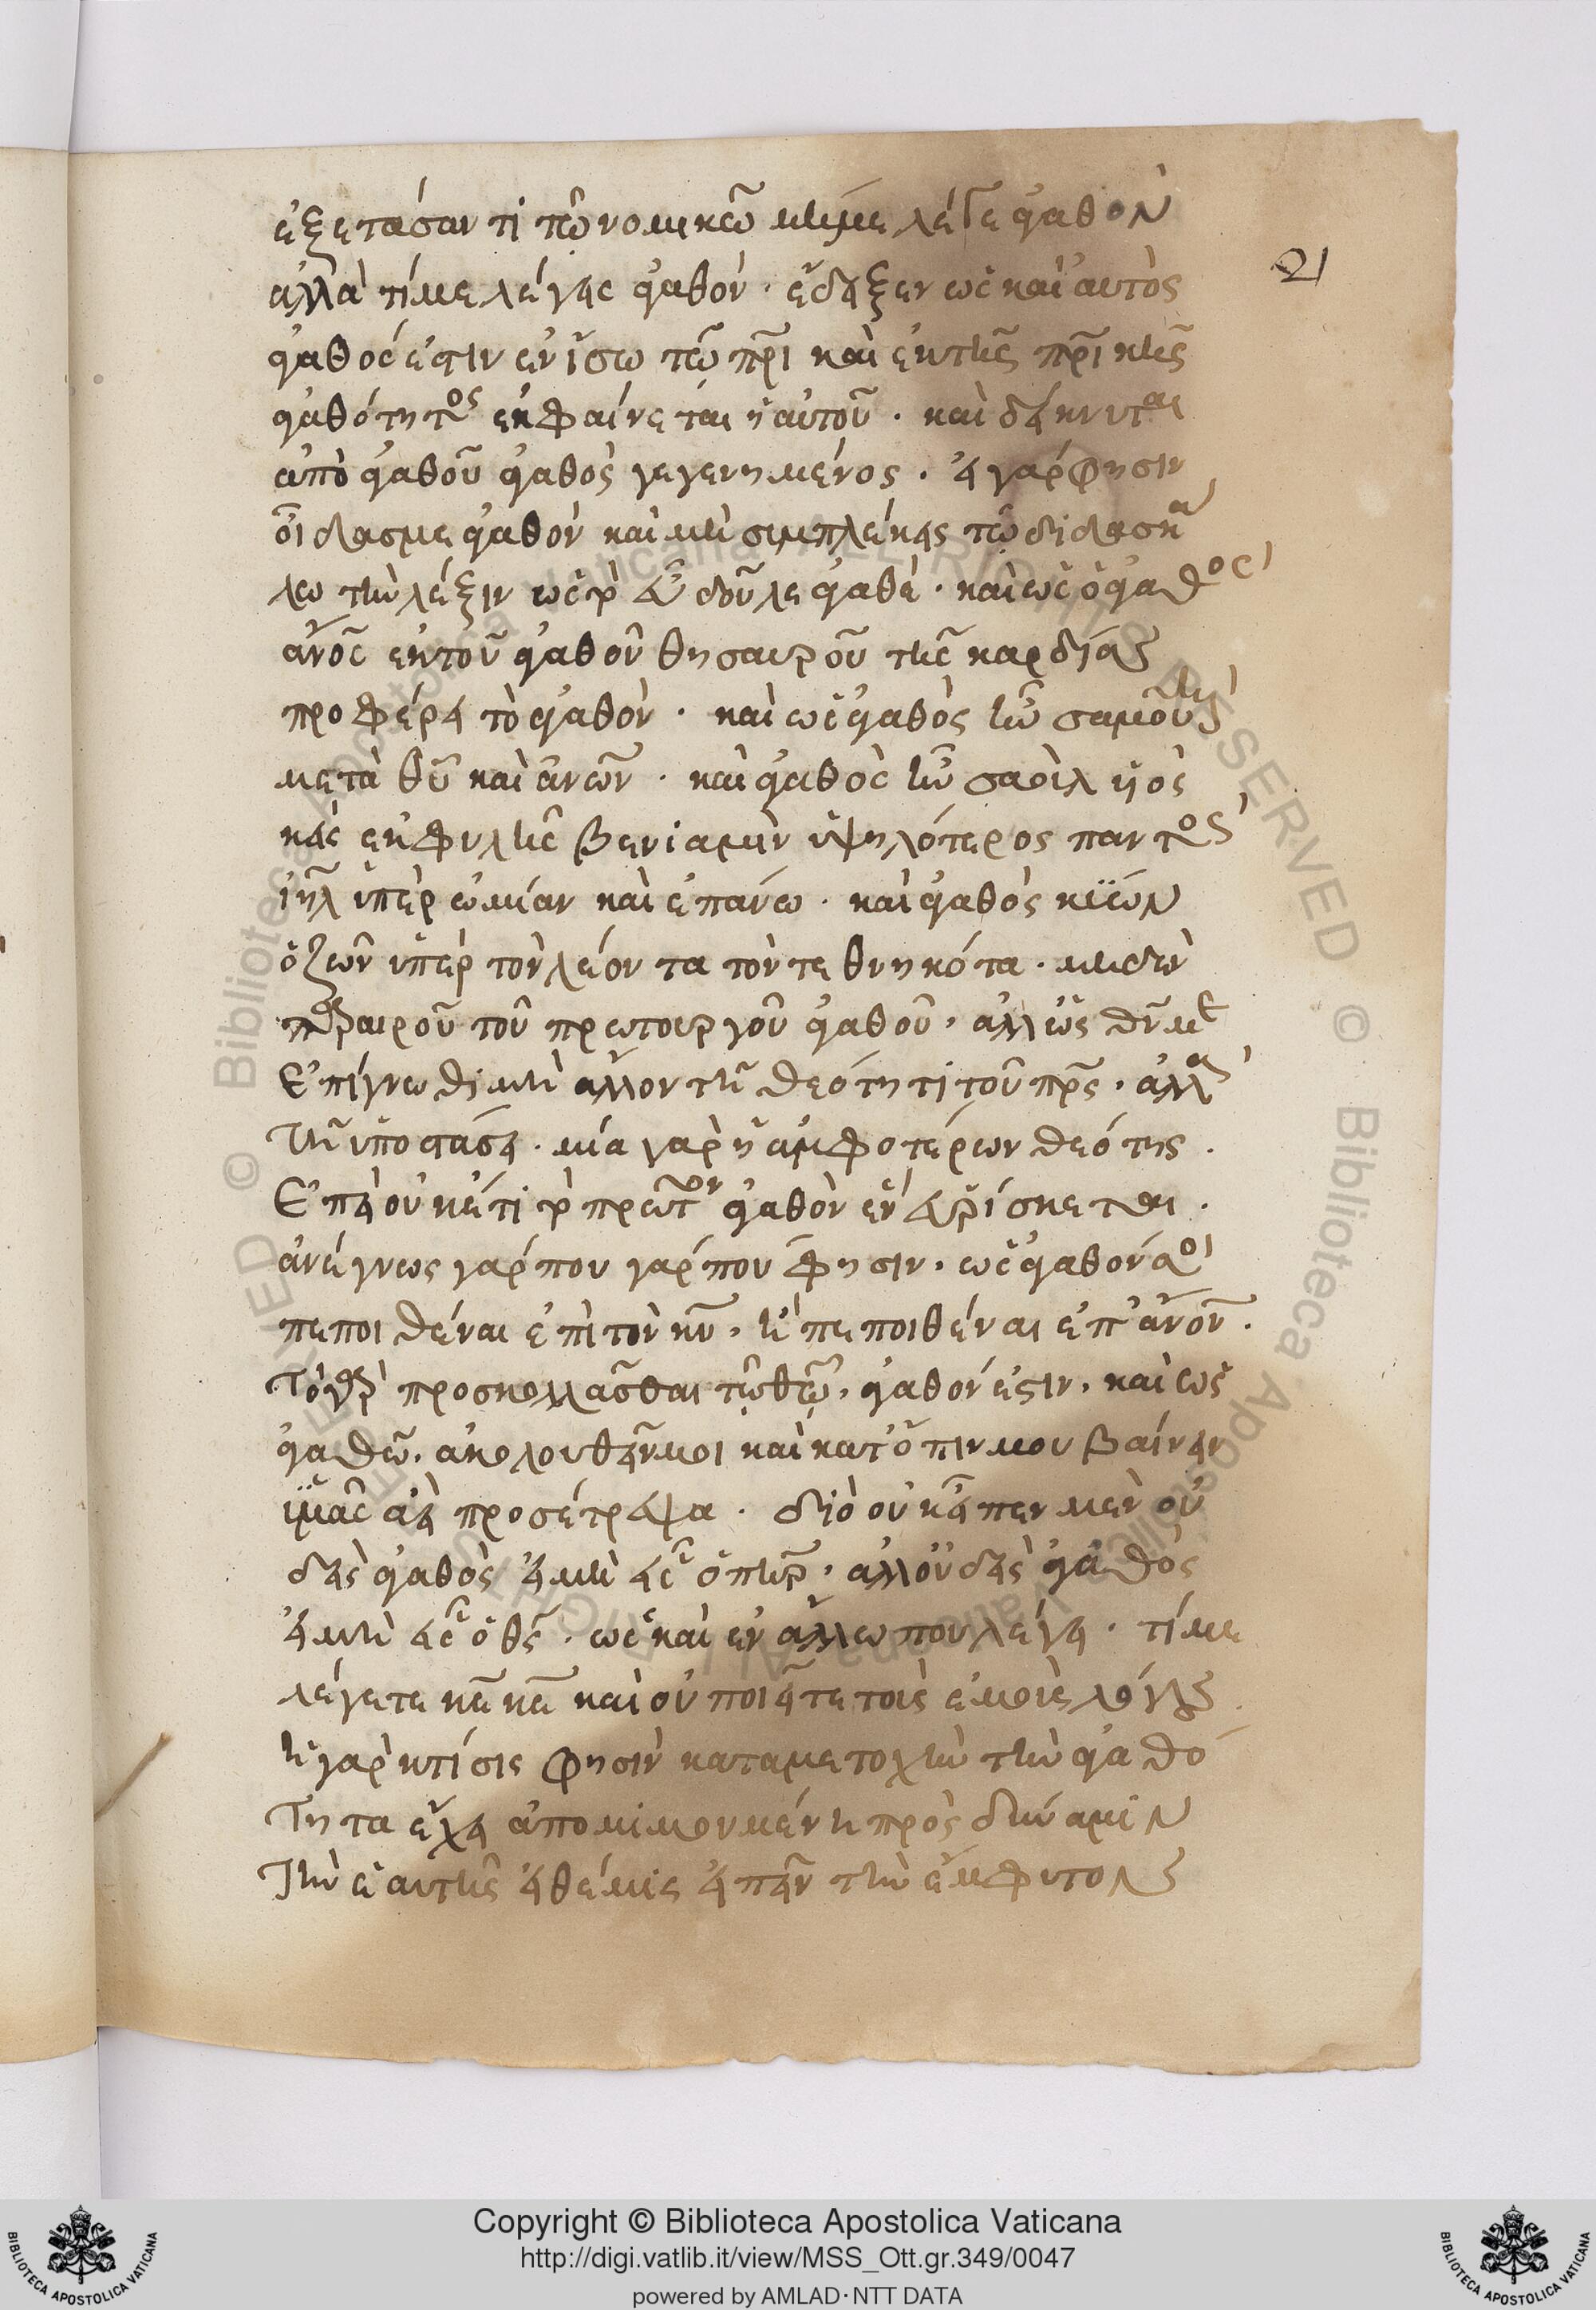 ἐξετάσαντι τῶ νομικῶ μὴ με λέγε ἀγαθὸν
21
ἀλλὰ τί με λέγεις ἀγαθόν· ἔδειξεν ὡς καὶ αὐτὸς
ἀγαθός ἐστιν ἐν ἴσω τῶ πρι καὶ ἐκ τῆς πρικῆς
ἀγαθότητος ἐκφαίνεται ἡ αὐτοῦ· καὶ δείκνυται
ἀπὸ ἀγαθοῦ ἀγαθὸς γεγενημένος· εἰ γάρ φησιν
οἶδας με ἀγαθὸν καὶ μὴ συμπλέκεις τῶ διδασκά
λω τὴν λέξιν ὡς τὸ εὖ δοῦλε ἀγαθέ· καὶ ὡς ὁ ἀγαθὸς
ἄνος ἐκ τοῦ ἀγαθοῦ θησαυροῦ τῆς καρδίας
προφέρει τὸ ἀγαθόν· καὶ ὡς ἀγαθὸς ἦν σαμουὴλ
μετὰ θυ καὶ ἀνων· καὶ ἀγαθὸς ἦν σαοὺλ υἱὸς
κὶς ἐκ φυλῆς βενιαμὶν ὑψηλότερος παντὸς
ιηλ ὑπὲρ ὠμίαν καὶ ἐπάνω· καὶ ἀγαθὸς κύων
ὁ ζῶν ὑπὲρ τὸν λέοντα τὸν τεθνηκότα·
τοῦ πρωτουργοῦ ἀγαθοῦ, ἀλλ' ὡς
Ἐπίγνωθι μὴ ἄλλον τῆ θεότητι τοῦ πρς, ἀλλὰ
Τῆ ὑποστάσει· μία γὰρ ἡ ἀμφοτέρων θεότης·
Ἐπεὶ οὐκέτι τὸ πρῶτον ἀγαθὸν ἓν εὑρίσκεται·
ἀνέγνως γάρ που γάρ που φησιν, ὡς ἀγαθὸν
πεποιθέναι ἐπὶ τὸν κν, ἢ πεποιθέναι ἐπ' ἄνον·
Τὸ γὰρ προσκολλᾶσθαι τῶ θῶ, ἀγαθόν ἐστιν, καὶ ὡς
ἀγαθῶ, ἀκολουθεῖν μοι καὶ κατόπιν μου βαίνειν
ὑμᾶς ἀεὶ προσέτρεψα· διὸ οὐκ εἶπεν μὲν οὐ
δεὶς ἀγαθὸς εἰ μὴ εἷς ὁ πηρ, ἀλλ' οὐδεὶς ἀγαθὸς
εἰ μὴ εἷς ὁ θς· ὡς καὶ ἐν ἄλλω που λέγει· τί με
λέγετε κε κε καὶ οὐ ποιεῖτε τοῖς ἐμοῖς λόγοις
ἡ γὰρ κτίσις φησὶν κατὰ μετοχὴν τὴν ἀγαθό
Τητα ἔχει ἀπομιμουμένη πρὸς δύναμιν
Τὴν ἑαυτῆς εἰ θέμις εἰπεῖν τὴν ἔμφυτον